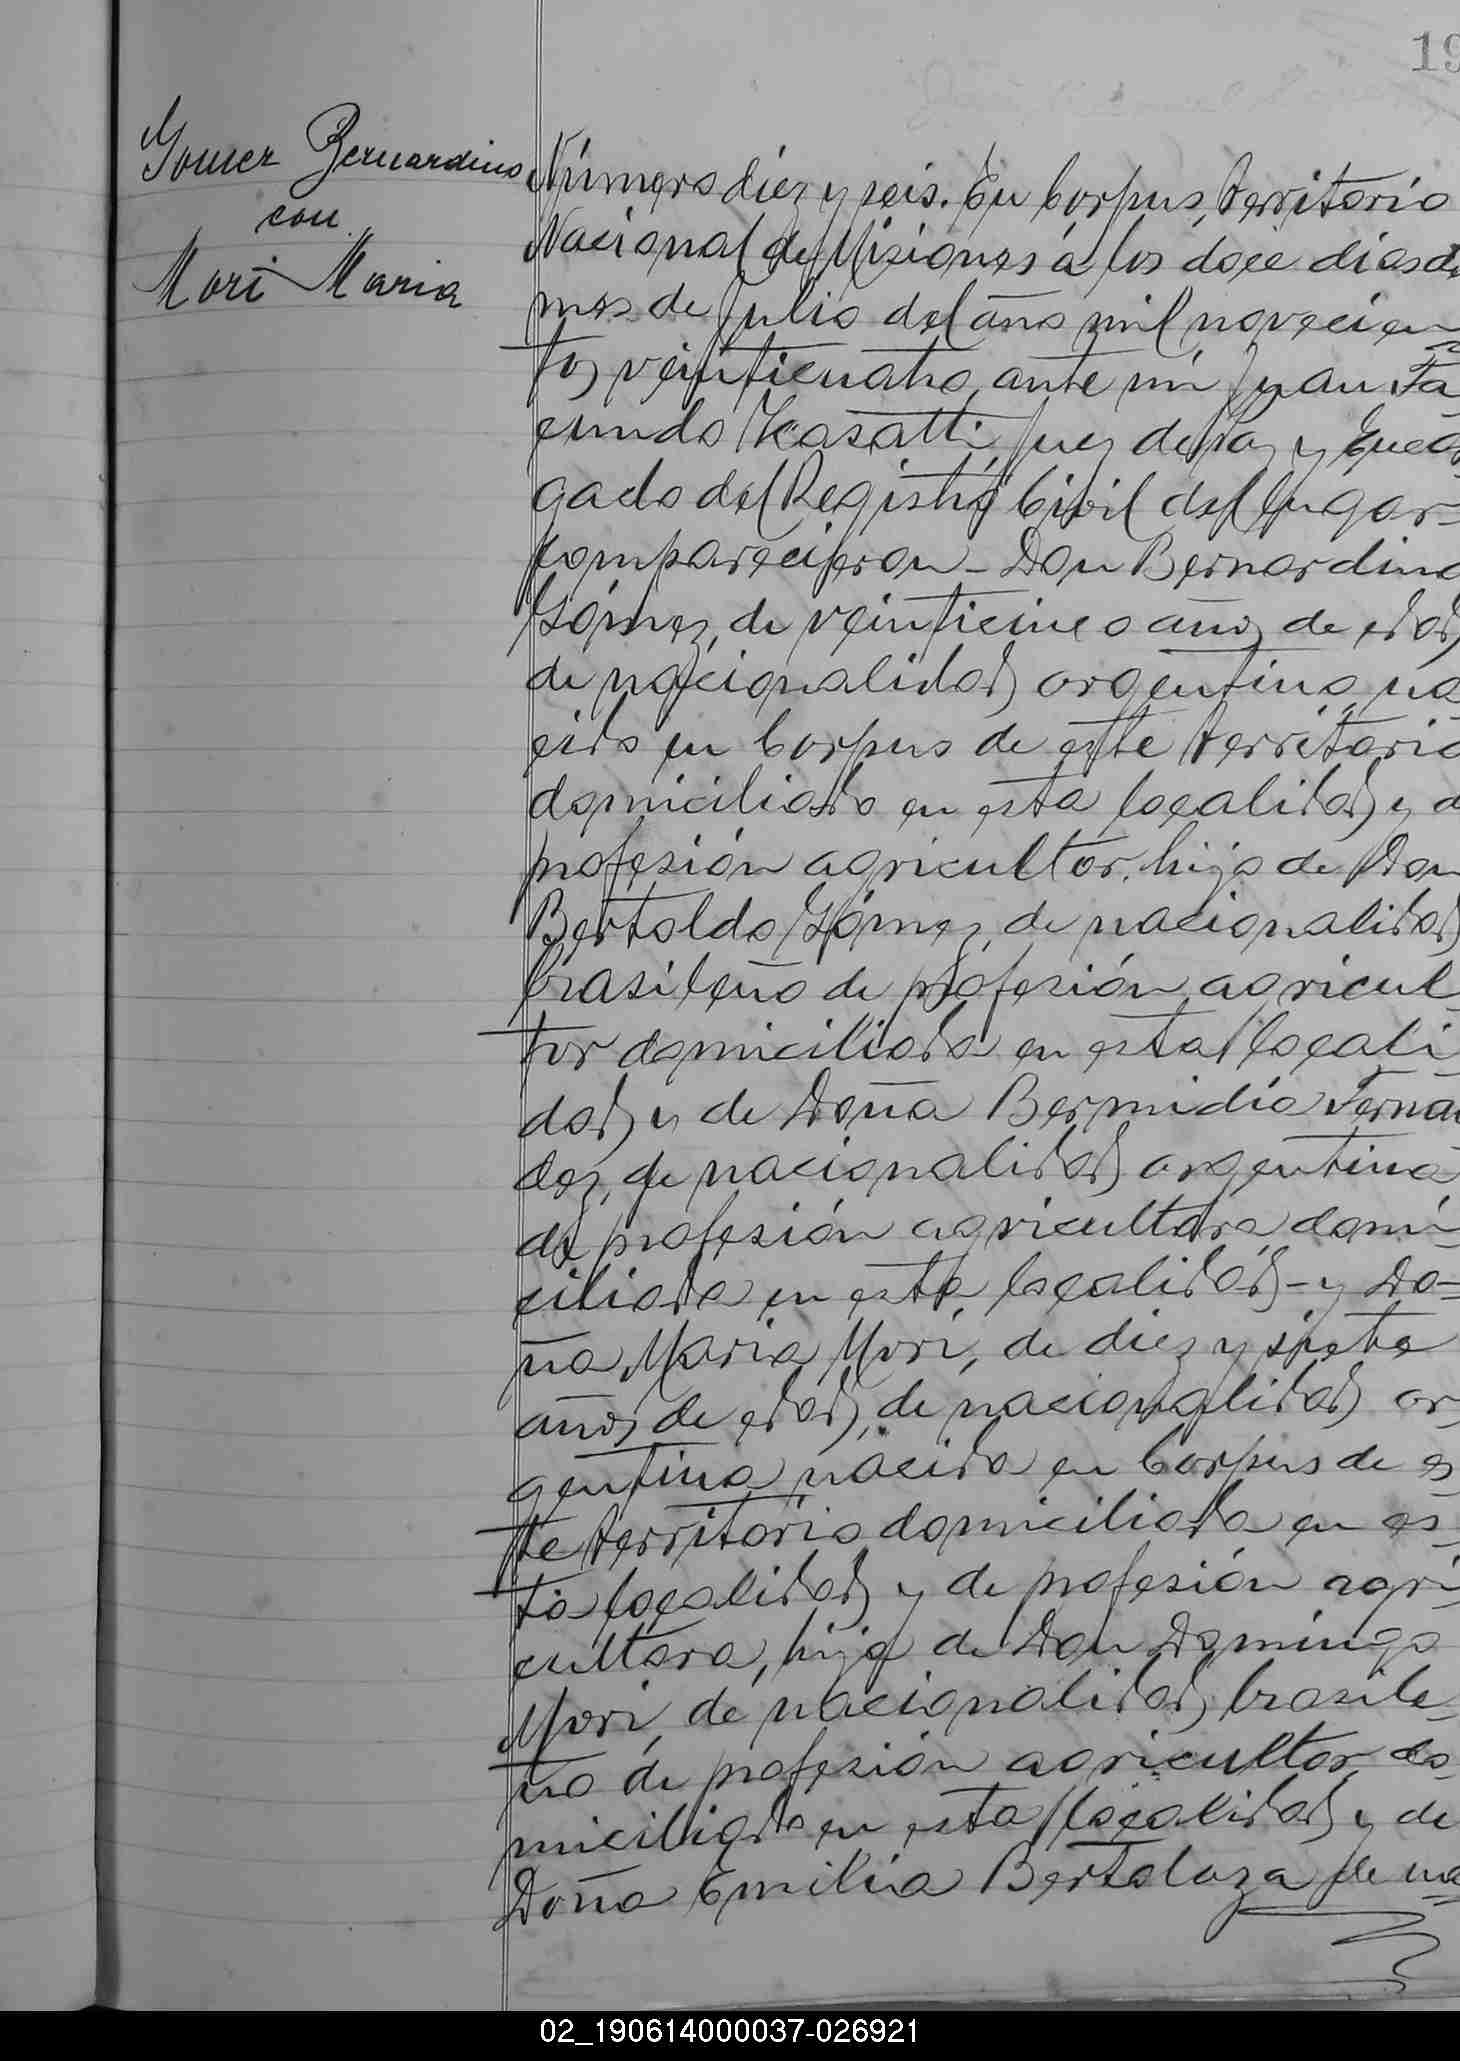 19
Gomez Bernardino
con
Mori Maria
Número diez y seis. En Corpus, territorio
Nacional de Misiones á los doce dias de
mes de Julio del año mil novecien
tos veinticuatro, ante mi Juan Fa
cundo Casatti, Juez de Paz y Encar
gado del Registro Civil del lugar
comparecieron - Don Bernardino
Gómez, de veinticinco años de edad,
de nacionalidad argentino, na
cido en Corpus de este territorio
domiciliado en esta localidad y d
profesión agricultor, hijo de Don
Bertoldo Gómez, de nacionalidad
brasileño de profesión agricul
tor domiciliado en esta locali
dad y de Doña Bermidia Fernan
dez, de nacionalidad argentina
de profesión agricultora domi
ciliada en esta localidad - y Do-
ña Maria Mori, de diez y siete
años de edad, de nacionalidad ar
gentina nacida en Corpus de es
te territorio domiciliada en es
ta localidad y de profesión agri
cultora, hija de Don Domingo
Mori, de nacionalidad brasile
ño de profesión agricultor, do
miciliado en esta localidad y de
Doña Emilia Bertolaza de na
02_190614000037-026921